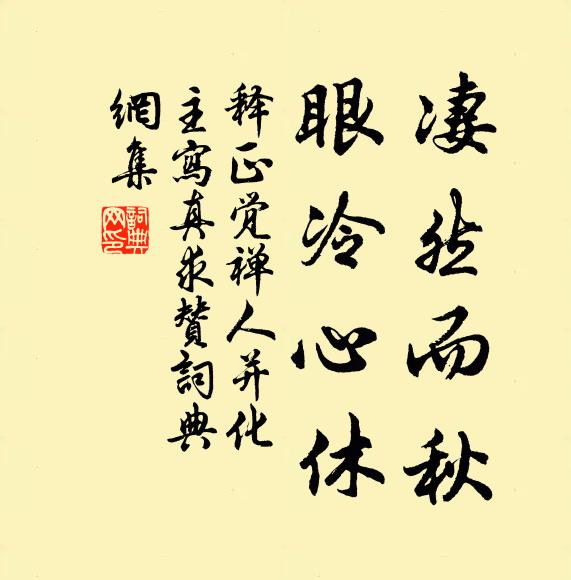 凄然而秋
眼冷心休
释正觉禅人并化
主寫真求赞詞典
網集
詞典網印